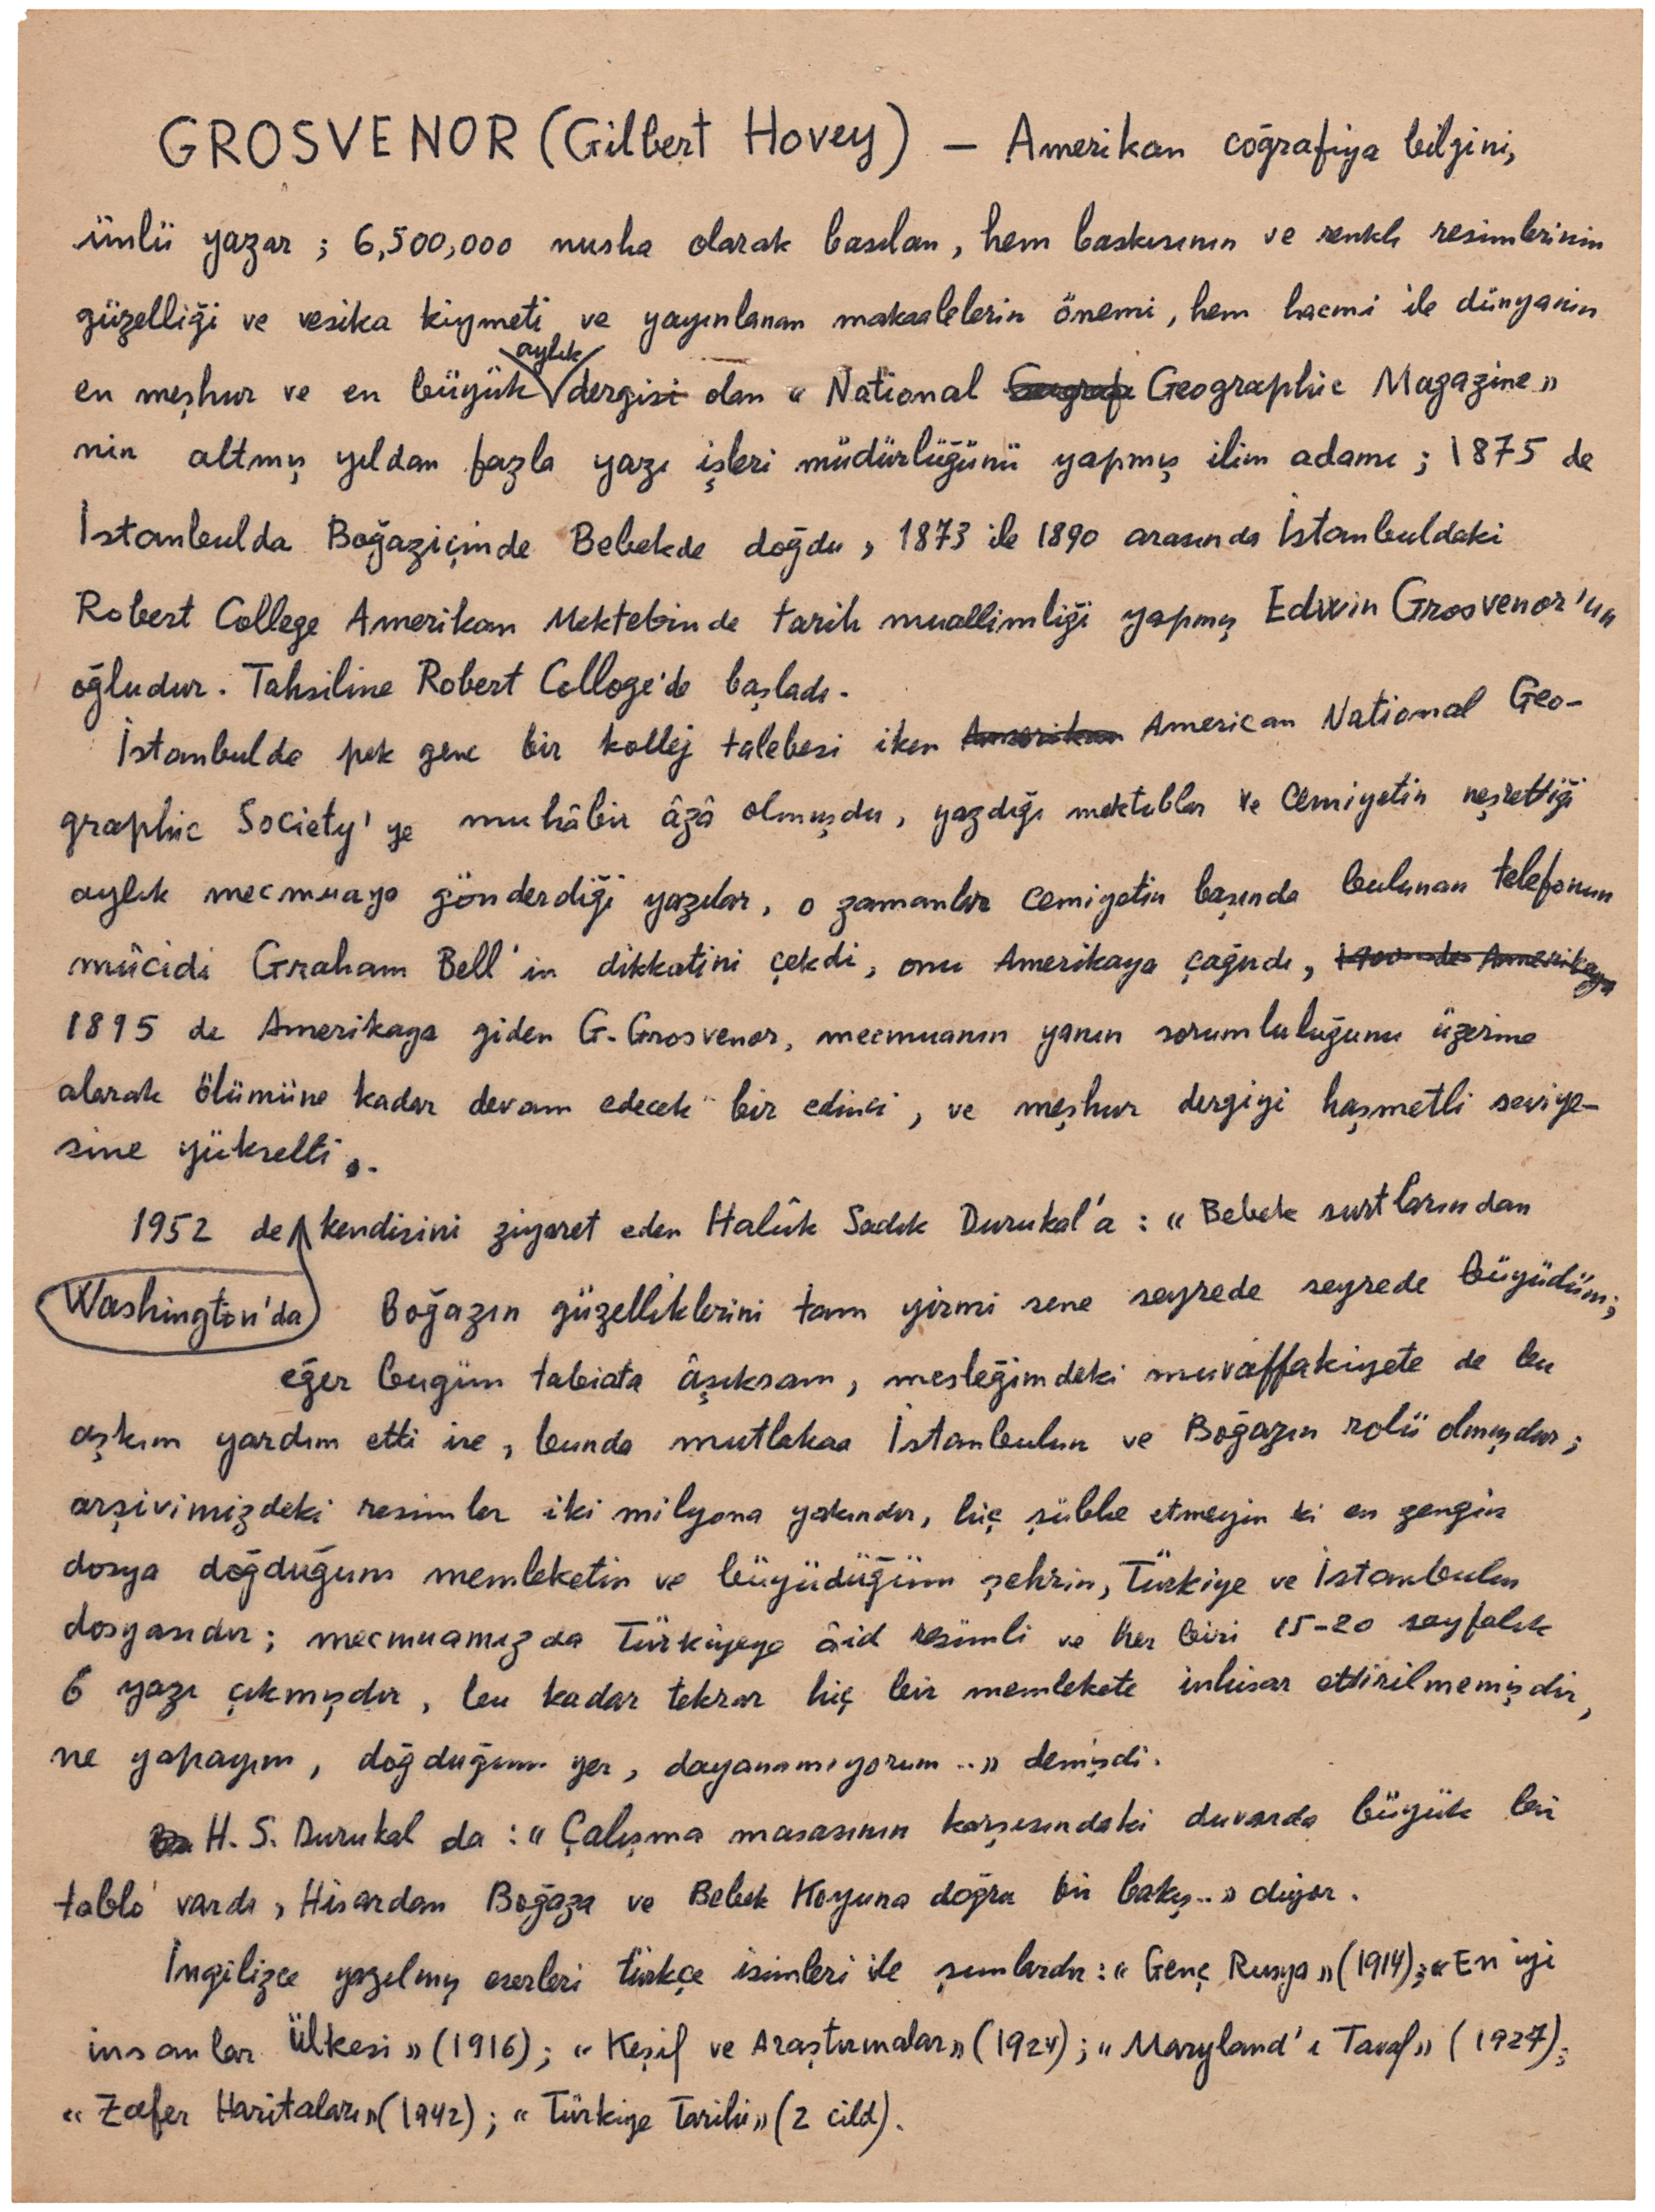 GROSVENOR (Gilbert Hovey) — Amerikan coğrafiya bilgini,
ünlü yazar ; 6,500,000 nusha olarak basılan, hem baskısının ve renkli resimlerinin
güzelliği ve vesika kiymeti ve yayınlanan makaalelerin önemi, hem hacmi ile dünyanın
en meşhur ve en büyük aylık dergisi olan « National Geographic Magazine »
nin altmış yıldan fazla yazı işleri müdürlüğünü yapmış ilim adamı ; 1875 de
İstanbulda Boğaziçinde Bebekde doğdu, 1873 ile 1890 arasında İstanbuldaki
Robert College Amerikan Mektebinde tarih muallimliği yapmış Edwin Grosvenor'un
oğludur. Tahsiline Robert Colloge'de başladı.
İstanbulda pek genc bir kollej talebesi iken American National Geo-
graphic Society'ye muhâbir âzâ olmuşdu, yazdığı mektublar ve Cemiyetin neşrettiği
aylık mecmuaya gönderdiği yazılar, o zamanlar cemiyetin başında bulunan telefonun
mûcidi Graham Bell'in dikkatini çekdi, onu Amerikaya çağırdı,
1895 de Amerikaya giden G. Grosvenor, mecmuanın yayın sorumluluğunu üzerine
alarak ölümüne kadar devam edecek bir edinci, ve meşhur dergiyi haşmetli seviye-
sine yükseltti.
1952 de kendisini ziyaret eden Halûk Sadık Durukal'a : « Bebek sırtlarından
Washington'da Boğazın güzelliklerini tam yirmi sene seyrede seyrede büyüdüm;
eğer bugün tabiata âşıksam, mesleğimdeki muvaffakiyete de bu
aşkım yardım etti ise, bunda mutlakaa İstanbulun ve Boğazın rolü olmuşdur;
arşivimizdeki resimler iki milyona yakındır, hiç şübhe etmeyin ki en zengin
dosya doğduğum memleketin ve büyüdüğüm şehrin, Türkiye ve İstanbulun
dosyasıdır; mecmuamızda Türkiyeye âid resimli ve her biri 15-20 sayfalık
6 yazı çıkmışdır, bu kadar tekrar hiç bir memlekete inhisar ettirilmemişdir,
ne yapayım, doğduğum yer, dayanamıyorum..» demişdi.
H. S. Durukal da : « Çalışma masasının karşısındaki duvarda büyük bir
tablo vardı, Hisardan Boğaza ve Bebek Koyuna doğru bir bakış..» diyor.
İngilizce yazılmış eserleri türkçe isimleri ile şunlardır : « Genç Rusya » (1914); « En iyi
insanlar Ülkesi » (1916); « Keşif ve Araştırmalar » (1924); « Maryland'ı Tavaf » (1927);
« Zafer Haritaları » (1942); « Türkiye Tarihi » (2 cild).